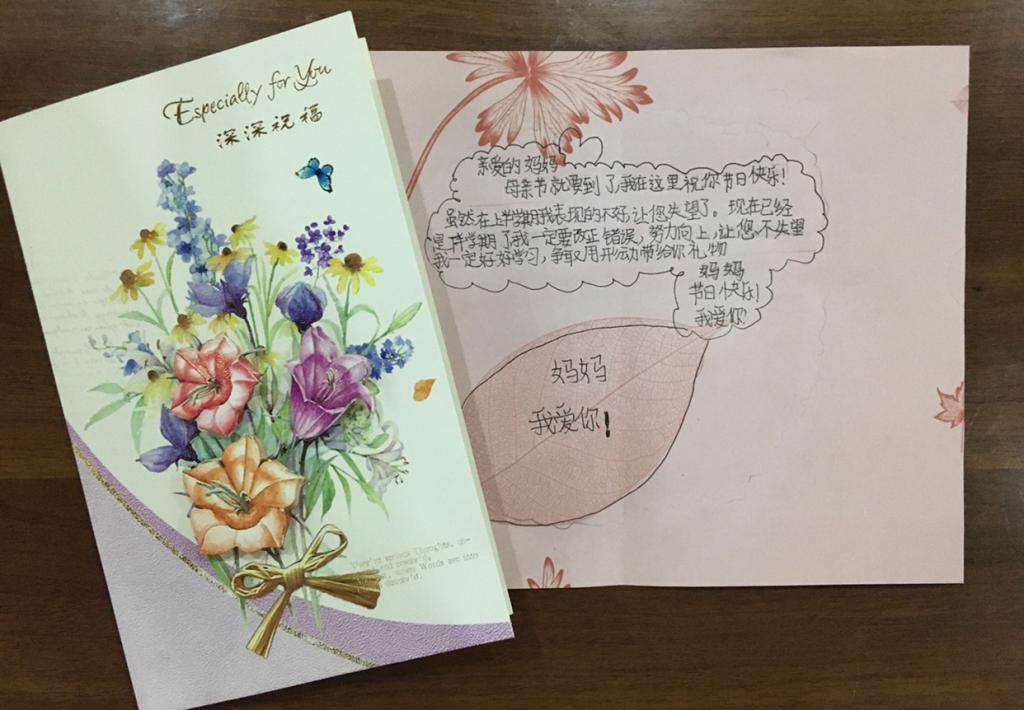 Especially for You
深深祝福
亲爱的妈妈
母亲节就要到了,我在这里祝你节日快乐!
虽然在上半学期我表现的不好,让您失望了。现在已经
是下半学期了我一定要改正错误,努力向上,让您不失望
我一定好好学习,争取用行动带给你礼物
妈妈
节日快乐!
我爱你
妈妈
我爱你!